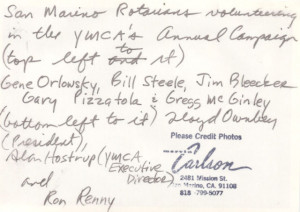 San Marino Rotarians volunteering
in the YMCA's Annual Campaign
(top left to rt)
Gene Orlowsky, Bill Steele, Jim Bleecker
Gary Pizzatola & Gregg McGinley
(bottom left to rt) Lloyd
(President),
Alan Hostrup (YMCA
Executive
Director)
and
Ron Renny
Please Credit Photos
Carlson
2481 Mission St.
San Marino, CA. 91108
818-799-5077